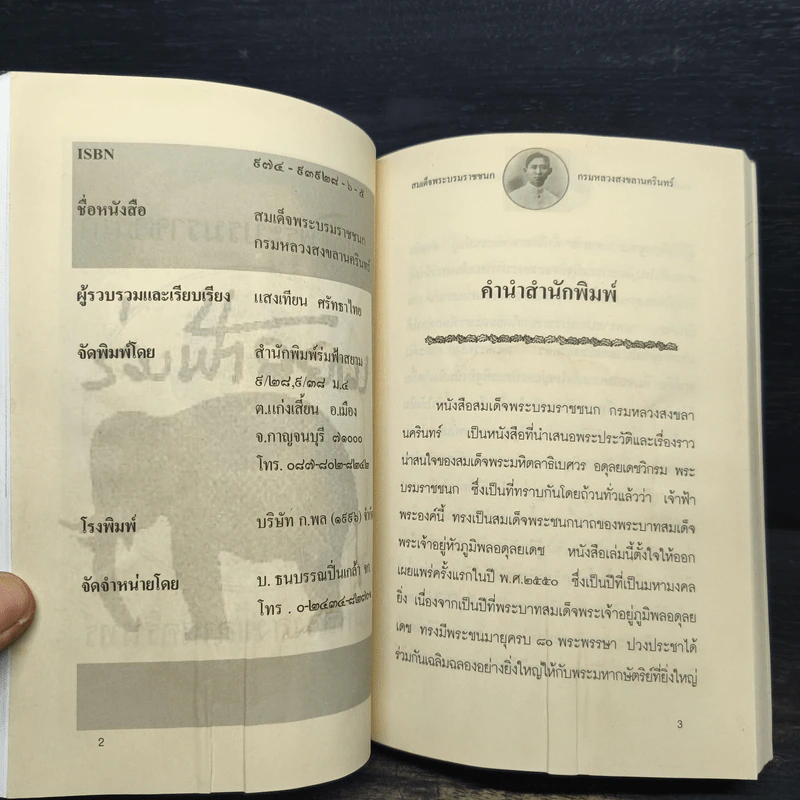 ISBN ๙๗๔ - ๙๓๙๒๘ - ๖ - ๕
ชื่อหนังสือ สมเด็จพระบรมราชชนก
กรมหลวงสงขลานครินทร์
ผู้รวบรวมและเรียบเรียง แสงเทียน ศรัทธาไทย
จัดพิมพ์โดย สำนักพิมพ์ร่มฟ้าสยาม
๙/๒๘,๙/๓๘ ม.๔
ต.แก่งเสี้ยน อ.เมือง
จ.กาญจนบุรี ๗๑๐๐๐
โทร. ๐๘๗-๘๐๒-๘๒๔๒
โรงพิมพ์ บริษัท ก.พล (๑๙๙๖)
จัดจำหน่ายโดย บ. ธนบรรณปิ่นเกล้า
โทร . ๐-๒๔๓๔-
2
สมเด็จพระบรมราชชนก กรมหลวงสงขลานครินทร์
คำนำสำนักพิมพ์
หนังสือสมเด็จพระบรมราชชนก กรมหลวงสงขลา
นครินทร์ เป็นหนังสือที่นำเสนอพระประวัติและเรื่องราว
น่าสนใจของสมเด็จพระมหิตลาธิเบศวร อดุลยเดชวิกรม พระ
บรมราชชนก ซึ่งเป็นที่ทราบกันโดยถ้วนทั่วแล้วว่า เจ้าฟ้า
พระองค์นี้ ทรงเป็นสมเด็จพระชนกนาถของพระบาทสมเด็จ
พระเจ้าอยู่หัวภูมิพลอดุลยเดช หนังสือเล่มนี้ตั้งใจให้ออก
เผยแพร่ครั้งแรกในปี พ.ศ.๒๕๕๐ ซึ่งเป็นปีที่เป็นมหามงคล
ยิ่ง เนื่องจากเป็นปีที่พระบาทสมเด็จพระเจ้าอยู่ภูมิพลอดุลย
เดช ทรงมีพระชนมายุครบ ๘๐ พระพรรษา ปวงประชาได้
ร่วมกันเฉลิมฉลองอย่างยิ่งใหญ่ให้กับพระมหากษัตริย์ที่ยิ่งใหญ่
3